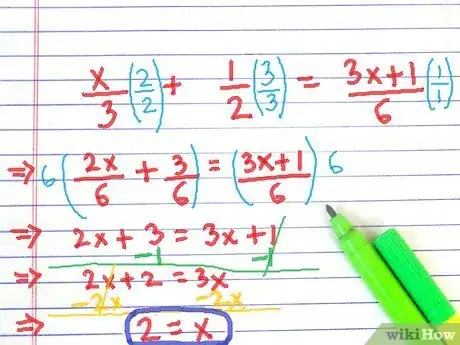 x/3 (2/2) + 1/2 (3/3) = (3x+1)/6 (1/1)
⇒ 6 (2x/6 + 3/6) = ((3x+1)/6) 6
⇒ 2x + 3 = 3x + 1
-1 -1
⇒ 2x + 2 = 3x
-2x -2x
⇒ 2 = x
wikiHow